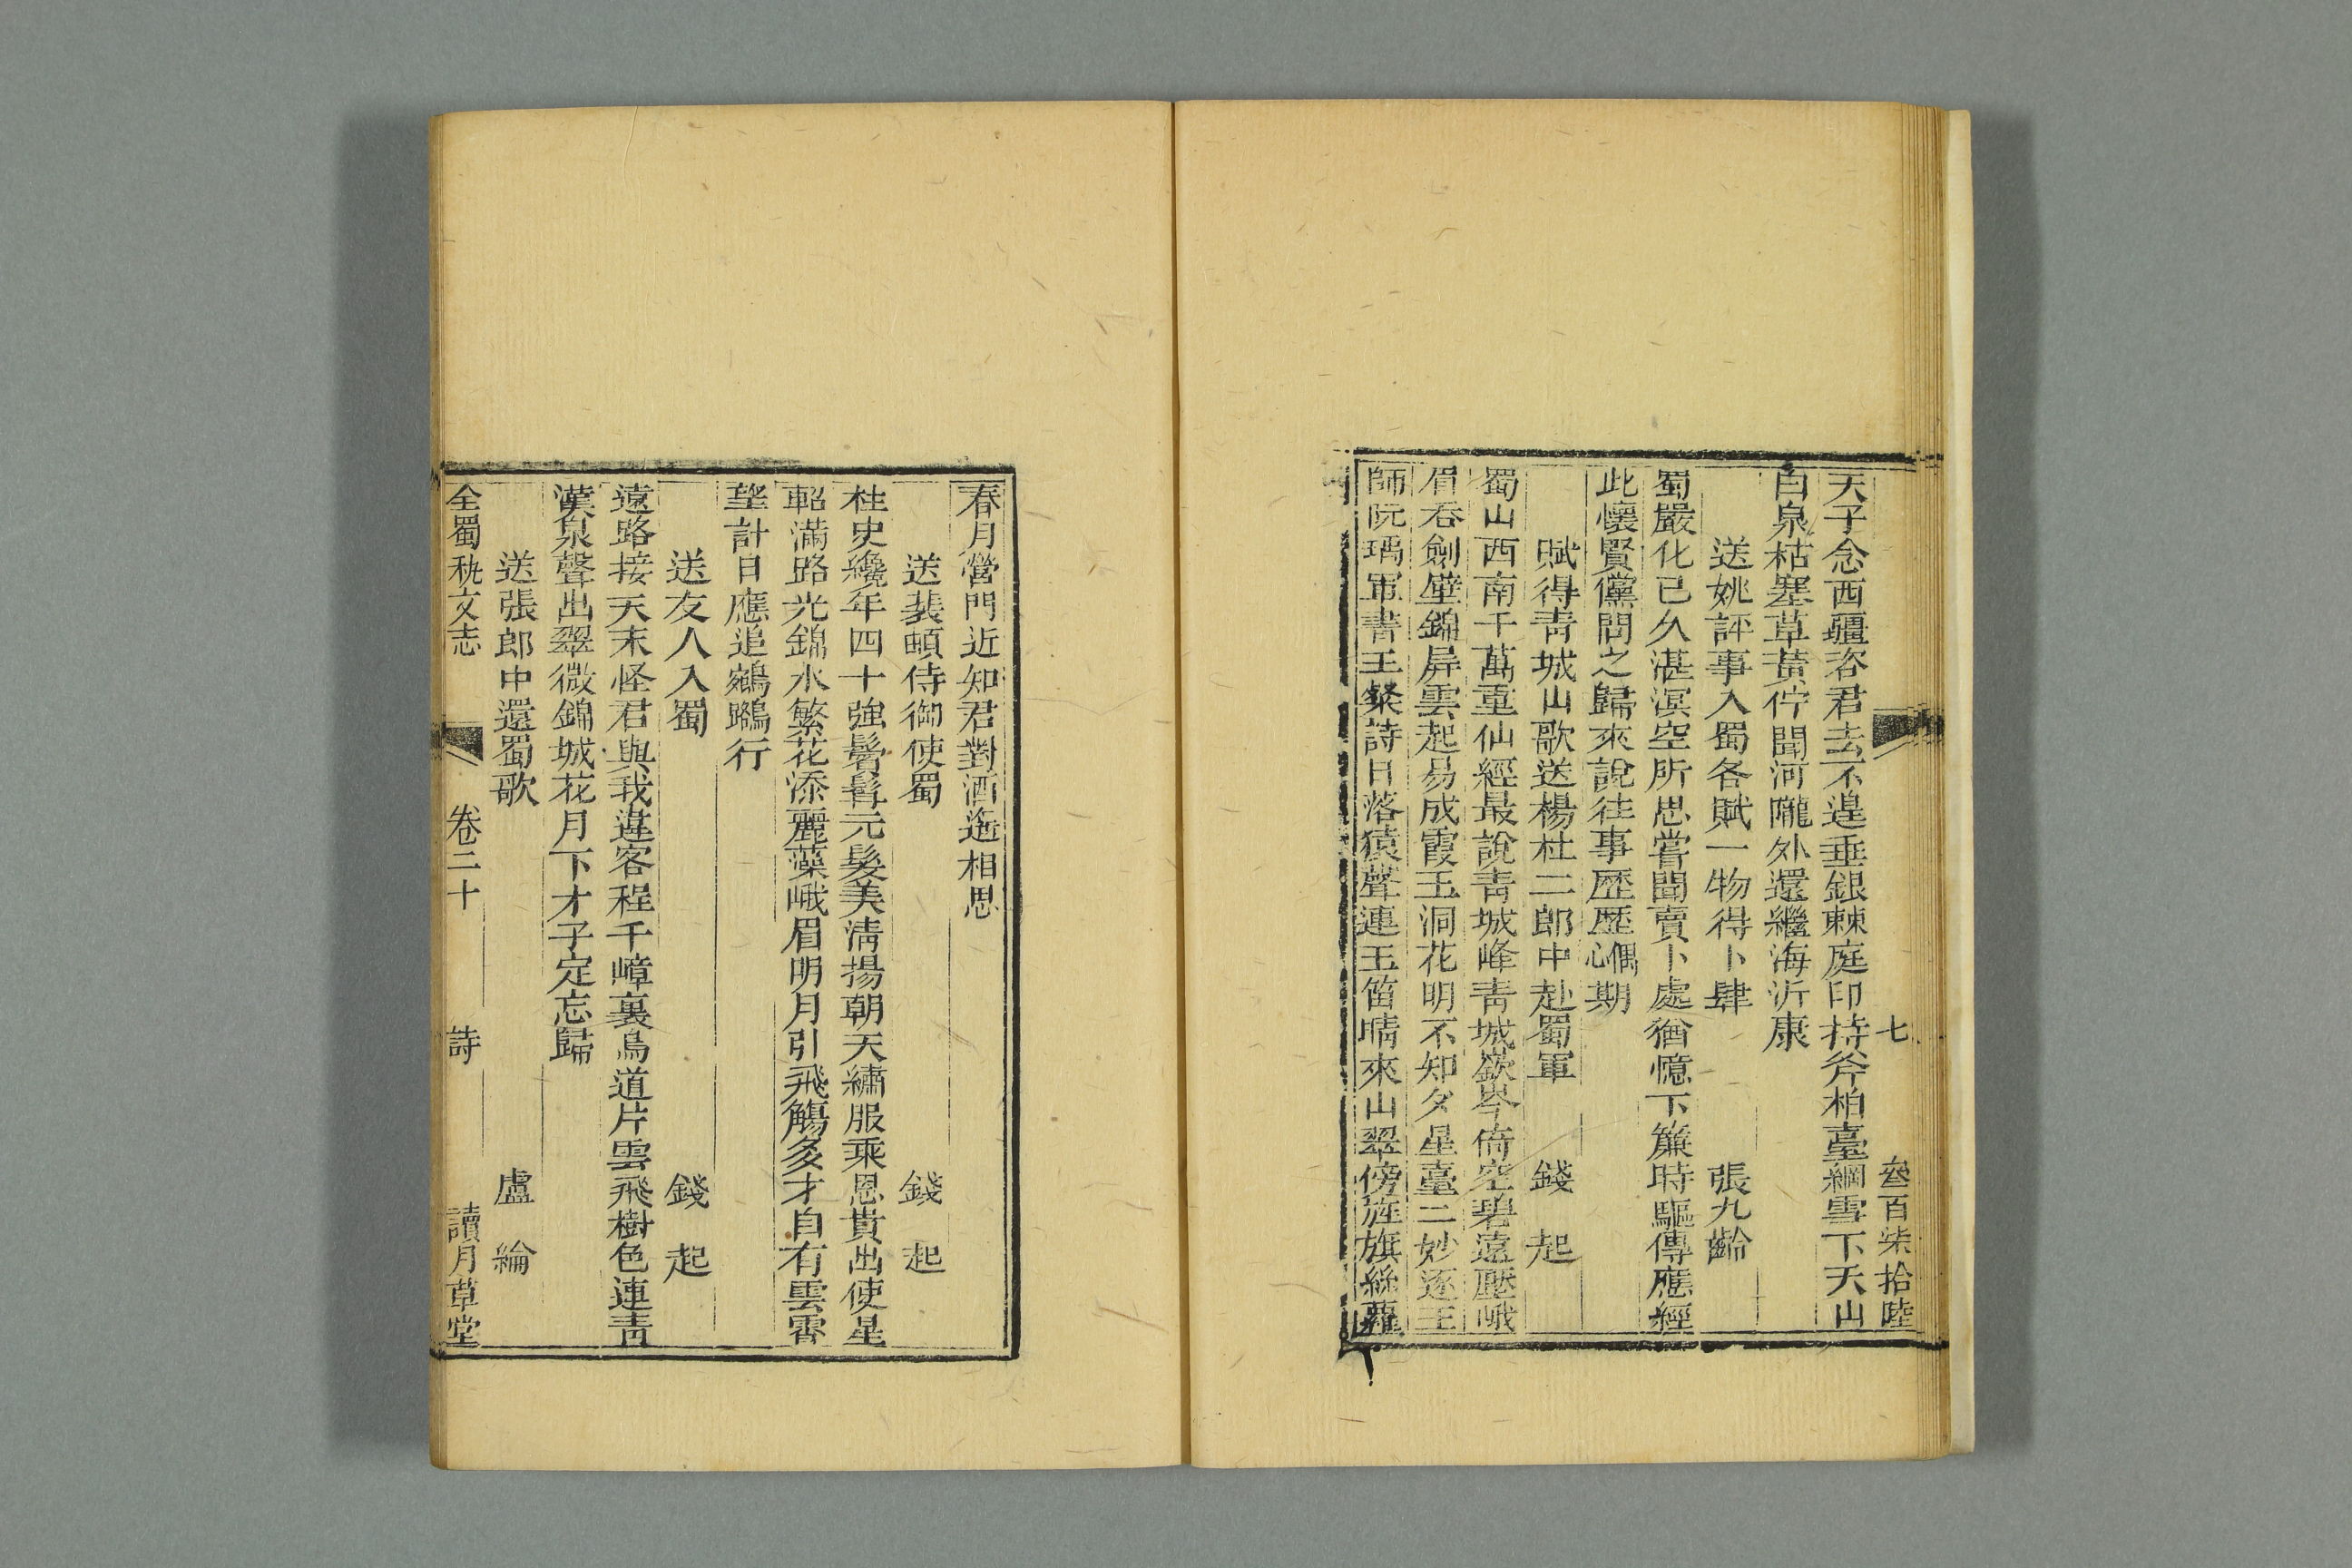 七　叁百柒拾陸
天子念西疆咨君去不遑垂銀棘庭印持斧柏臺綱雪下天山
白泉枯塞草黃佇聞河隴外還繼海沂康
送姚評事入蜀各賦一物得卜肆　張九齡
蜀嚴化已久湛溟空所思嘗聞賣卜處猶憶下簾時驅傳應經
此懷賢儻問之歸來說往事歷歷心偶期
賦得青城山歌送楊杜二郎中赴蜀軍　錢起
蜀山西南千萬重仙經最說青城峰青城嶔岑倚空碧遠壓峨
眉吞劍壁錦屏雲起易成霞玉洞花明不知夕星臺二妙逐王
師阮瑀軍書王粲詩日落猿聲連玉笛晴來山翠傍旌旗綠蘿
春月營門近知君對酒遙相思
送裴頔侍御使蜀　錢起
柱史纔年四十強鬍髯元髮美清揚朝天繡服乘恩貴出使星
軺滿路光錦水繁花添麗藻峨眉明月引飛觴多才自有雲霄
望計日應追鵷鷺行
送友人入蜀　錢起
遠路接天末怪君與我違客程千嶂裏鳥道片雲飛樹色連青
漢泉聲出翠微錦城花月下才子定忘歸
送張郎中還蜀歌　盧綸
全蜀秇文志　卷二十　詩　讀月草堂